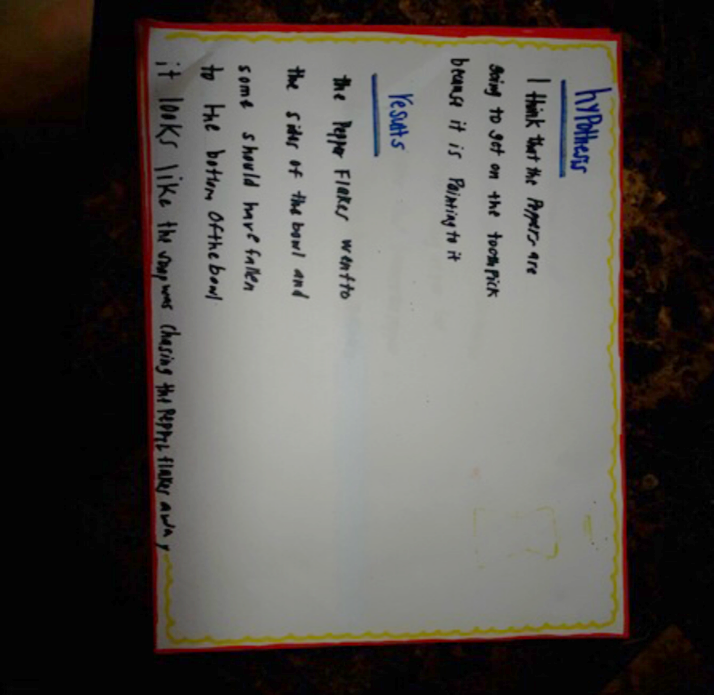 hyPothesis
I think that the Peppers are
going to get on the toothpick
because it is Painting to it
results
the Pepper Flakes went to
the sides of the bowl and
some should have fallen
to the bottom of the bowl
it looks like the soap was chasing the Pepper flakes away